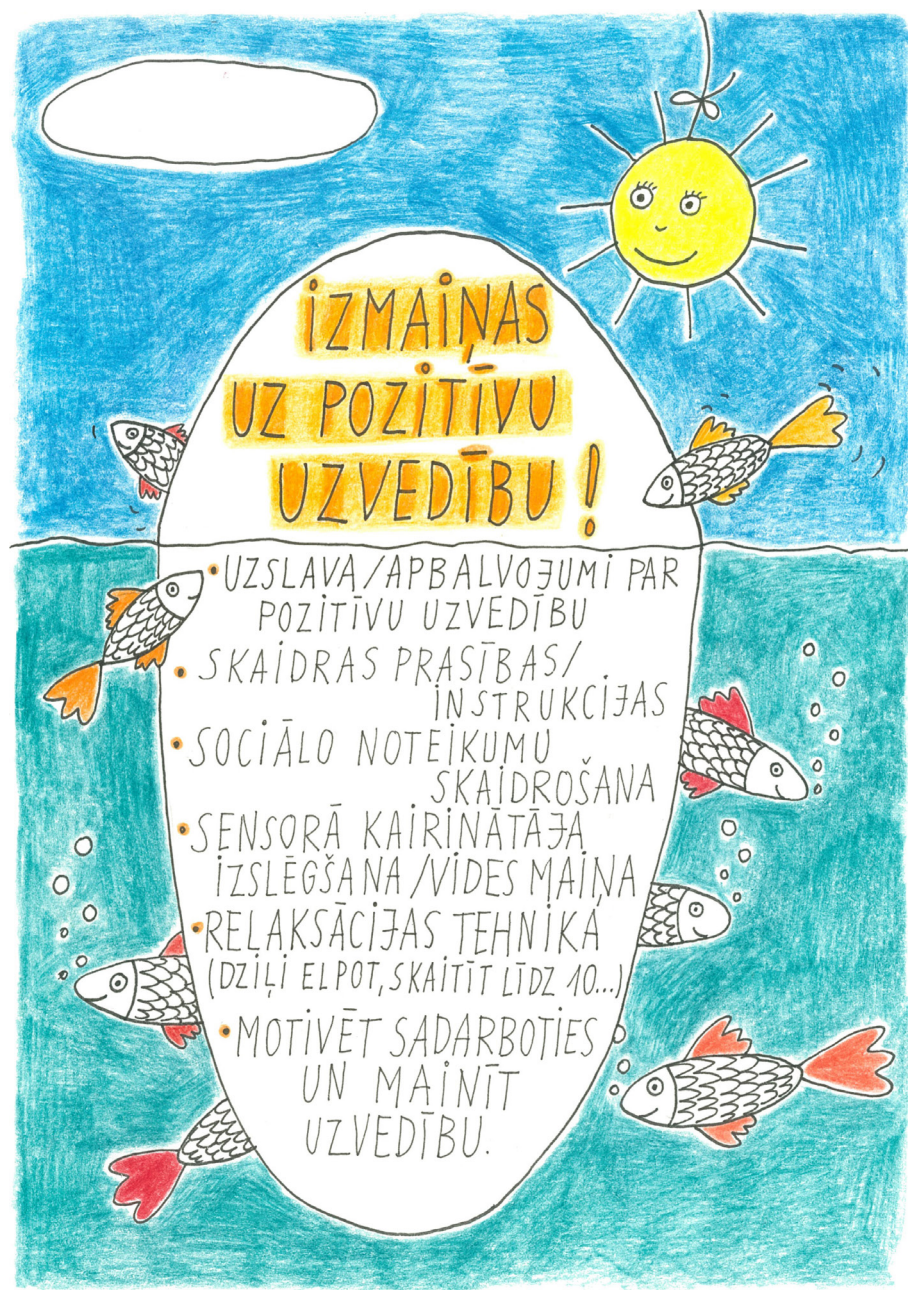 IZMAIŅAS
UZ POZITĪVU
UZVEDĪBU!
• UZSLAVA/APBALVOJUMI PAR
POZITĪVU UZVEDĪBU
• SKAIDRAS PRASĪBAS/
INSTRUKCIJAS
• SOCIĀLO NOTEIKUMU
SKAIDROŠANA
• SENSORĀ KAIRINĀTĀJA
IZSLĒGŠANA/VIDES MAIŅA
• RELAKSĀCIJAS TEHNIKA
(DZIĻI ELPOT, SKAITĪT LĪDZ 10...)
• MOTIVĒT SADARBOTIES
UN MAINĪT
UZVEDĪBU.